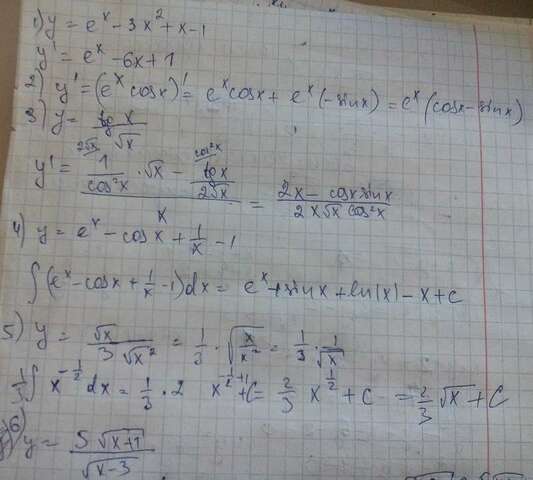 1) y = e^x - 3x^2 + x - 1
y' = e^x - 6x + 1
2) y' = (e^x cosx)' = e^x cosx + e^x(-sinx) = e^x(cosx - sinx)
3) y = tg x / √x
y' = (1/cos^2x · √x - tg x/2√x) / x = (2x - cosx sinx) / (2x√x cos^2x)
4) y = e^x - cosx + 1/x - 1
∫(e^x - cosx + 1/x - 1)dx = e^x + sinx + ln(x) - x + c
5) y = √x / 3√x^2 = 1/3 · √(x/x^2) = 1/3 · 1/√x
1/3 ∫ x^(-1/2) dx = 1/3 · 2 x^(-1/2+1) + C = 2/3 x^(1/2) + C = 2/3 √x + C
6) y = 5√(x+1) / √(x-3)